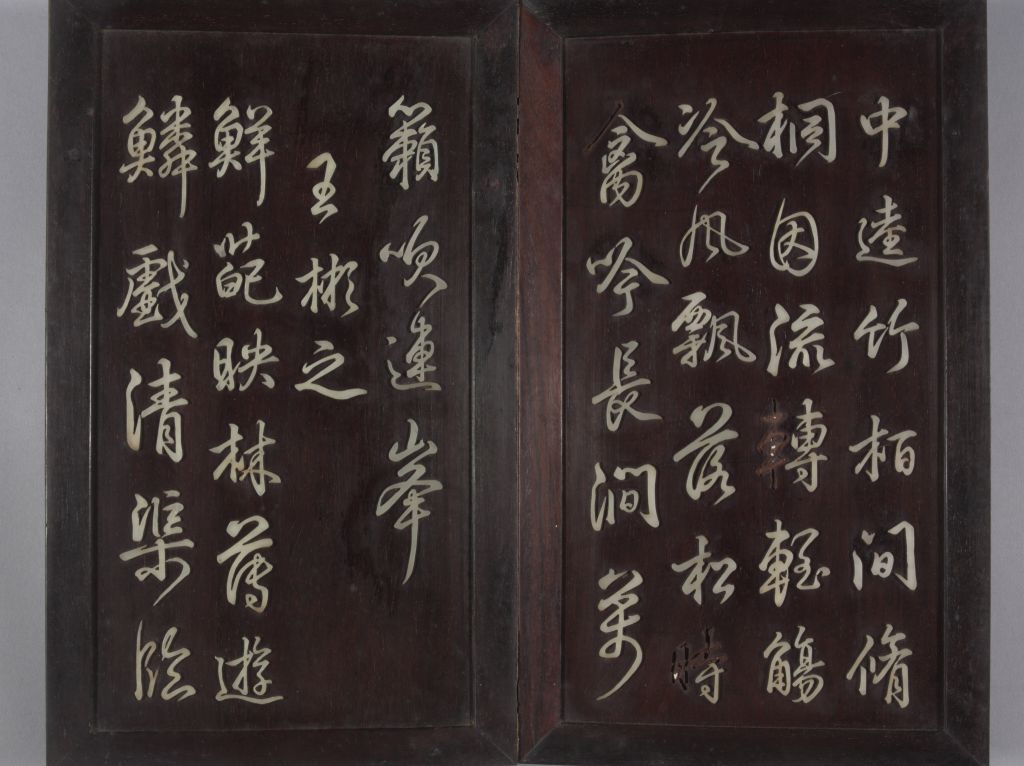 中逵竹柏間脩
桐因流轉輕觴
冷風飄落松時
禽吟長澗萬
籟吹連峯
王彬之
鮮葩映林薄遊
鱗戲清渠臨